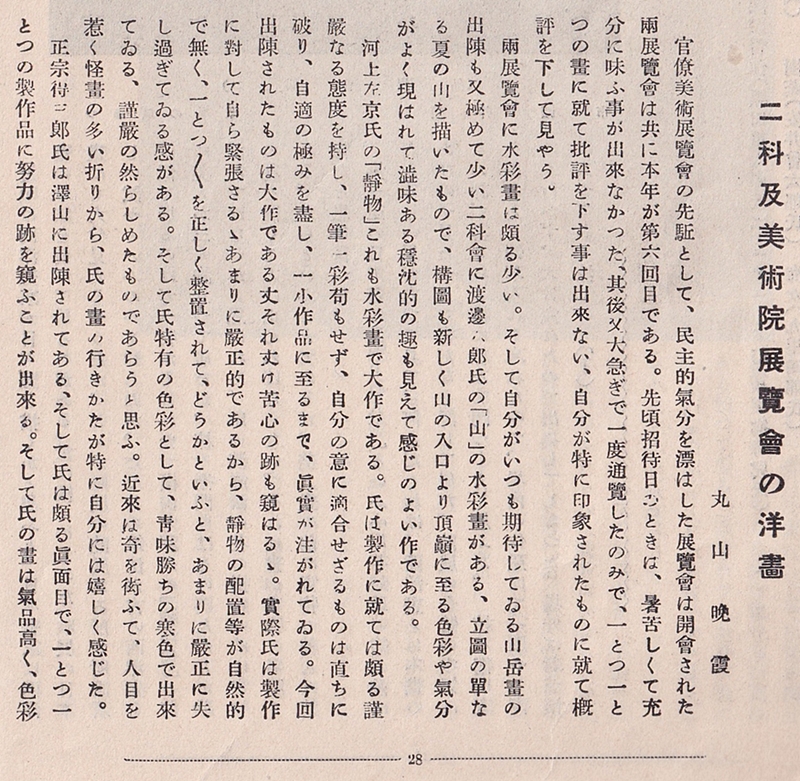 二科及美術院展覽會の洋畫
丸山晩霞
官僚美術展覽會の先駈として、民主的氣分を漂はした展覽會は開會された
兩展覽會は共に本年が第六回目である。先頃招待日のときは、暑苦しくて充
分に味ふ事が出來なかつた、其後又大急ぎで一度通覽したのみで、一とつ一と
つの畫に就て批評を下す事は出來ない、自分が特に印象されたものに就て槪
評を下して見やう。
兩展覽會に水彩畫は頗る少い。そして自分がいつも期待してゐる山岳畫の
出陳も又極めて少い二科會に渡邊六郎氏の「山」の水彩畫がある、立圖の單な
る夏の山を描いたもので、構圖も新しく山の入口より頂巓に至る色彩や氣分
がよく現はれて澁味ある穩沈的の趣も見えて感じのよい作である。
河上左京氏の「靜物」これも水彩畫で大作である。氏は製作に就ては頗る謹
嚴なる態度を持し、一筆一彩苟もせず、自分の意に適合せざるものは直ちに
破り、自適の極みを盡し、一小作品に至るまで、眞實が注がれてゐる。今回
出陳されたものは大作である丈それ丈け苦心の跡も窺はるゝ。實際氏は製作
に對して自ら緊張さるゝあまりに嚴正的であるから、靜物の配置等が自然的
で無く、一とつ〱を正しく整置されて、どうかといふと、あまりに嚴正に失
し過ぎてゐる感がある。そして氏特有の色彩として、靑味勝ちの寒色で出來
てゐる、謹嚴の然らしめたものであらうと思ふ。近來は奇を衒ふて、人目を
惹く怪畫の多い折りから、氏の畫の行きかたが特に自分には嬉しく感じた。
正宗得三郎氏は澤山に出陳されてある、そして氏は頗る眞面目で、一とつ一
とつの製作品に努力の跡を窺ふことが出來る。そして氏の畫は氣品高く、色彩
28